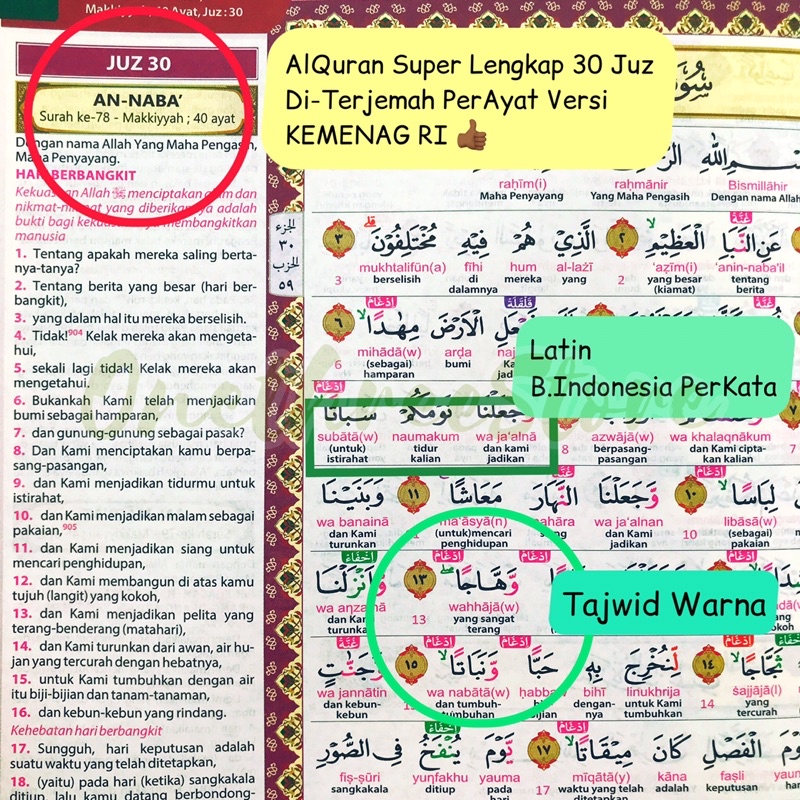 Makkiyyah; 40 Ayat, Juz: 30
JUZ 30
AN-NABA'
Surah ke-78 - Makkiyyah ; 40 ayat
Dengan nama Allah Yang Maha Pengasih,
Maha Penyayang.
HARI BERBANGKIT
Kekuasaan Allah ﷻ menciptakan alam dan
nikmat-nikmat yang diberikannya adalah
bukti bagi kekuasaannya membangkitkan
manusia
1. Tentang apakah mereka saling berta-
nya-tanya?
2. Tentang berita yang besar (hari ber-
bangkit),
3. yang dalam hal itu mereka berselisih.
4. Tidak!904 Kelak mereka akan mengeta-
hui,
5. sekali lagi tidak! Kelak mereka akan
mengetahui.
6. Bukankah Kami telah menjadikan
bumi sebagai hamparan,
7. dan gunung-gunung sebagai pasak?
8. Dan Kami menciptakan kamu berpa-
sang-pasangan,
9. dan Kami menjadikan tidurmu untuk
istirahat,
10. dan Kami menjadikan malam sebagai
pakaian,905
11. dan Kami menjadikan siang untuk
mencari penghidupan,
12. dan Kami membangun di atas kamu
tujuh (langit) yang kokoh,
13. dan Kami menjadikan pelita yang
terang-benderang (matahari),
14. dan Kami turunkan dari awan, air hu-
jan yang tercurah dengan hebatnya,
15. untuk Kami tumbuhkan dengan air
itu biji-bijian dan tanam-tanaman,
16. dan kebun-kebun yang rindang.
Kehebatan hari berbangkit
17. Sungguh, hari keputusan adalah
suatu waktu yang telah ditetapkan,
18. (yaitu) pada hari (ketika) sangkakala
ditiup, lalu kamu datang berbondong-
AlQuran Super Lengkap 30 Juz
Di-Terjemah PerAyat Versi
KEMENAG RI 👍🏾
الجزء
٣٠
الحزب
٥٩
بِسْمِ اللهِ
raḥīm(i) raḥmānir Bismillāhir
Maha Penyayang Yang Maha Pengasih Dengan nama Allah
عَنِ النَّبَاِ الْعَظِيْمِ ٢ الَّذِيْ هُمْ فِيْهِ مُخْتَلِفُوْنَ ٣
3 mukhtalifūn(a) fīhi hum al-lażī 2 'aẓīm(i) 'anin-naba'il
berselisih di dalamnya mereka yang yang besar (kiamat) tentang berita
الْاَرْضَ مِهٰدًا ٦
6 mihādā(w) arḍa
(sebagai) hamparan bumi
Latin
B.Indonesia PerKata
وَّجَعَلْنَا نَوْمَكُمْ سُبَاتًا
subātā(w) naumakum wa ja'alnā 8 azwājā(w) wa khalaqnākum 7
(untuk) istirahat tidur kalian dan kami jadikan berpasang-pasangan dan Kami cipta-kan kalian
لِبَاسًا ١٠ وَّجَعَلْنَا النَّهَارَ مَعَاشًا ١١ وَبَنَيْنَا
wa banainā ma'āsyā(n) nahāra wa ja'alnan 10 libāsā(w)
dan Kami turunkan (untuk) mencari penghidupan siang dan Kami jadikan (sebagai) pakaian
وَّهَّاجًا ١٣ وَّاَنْزَلْنَا
wa anzalnā 13 wahhājā(w)
dan Kami turunkan yang sangat terang
Tajwid Warna
ثَجَّاجًا ١٤ لِّنُخْرِجَ بِهٖ حَبًّا وَّنَبَاتًا ١٥ وَّجَنّٰتٍ
wa jannātin wa nabātā(w) ḥabban bihī linukhrija 14 ṡajjājā(l)
dan kebun-kebun dan tumbuh-tumbuhan dengan-nya untuk Kami tumbuhkan yang tercurah
يَوْمَ الْفَصْلِ كَانَ مِيْقَاتًا ١٧ يَّوْمَ يُنْفَخُ فِى الصُّوْرِ
fiṣ-ṣūri yunfakhu yauma 17 mīqātā(y) kāna faṣli yauma
sangkakala ditiup pada hari waktu yang telah ditetapkan adalah keputusan hari